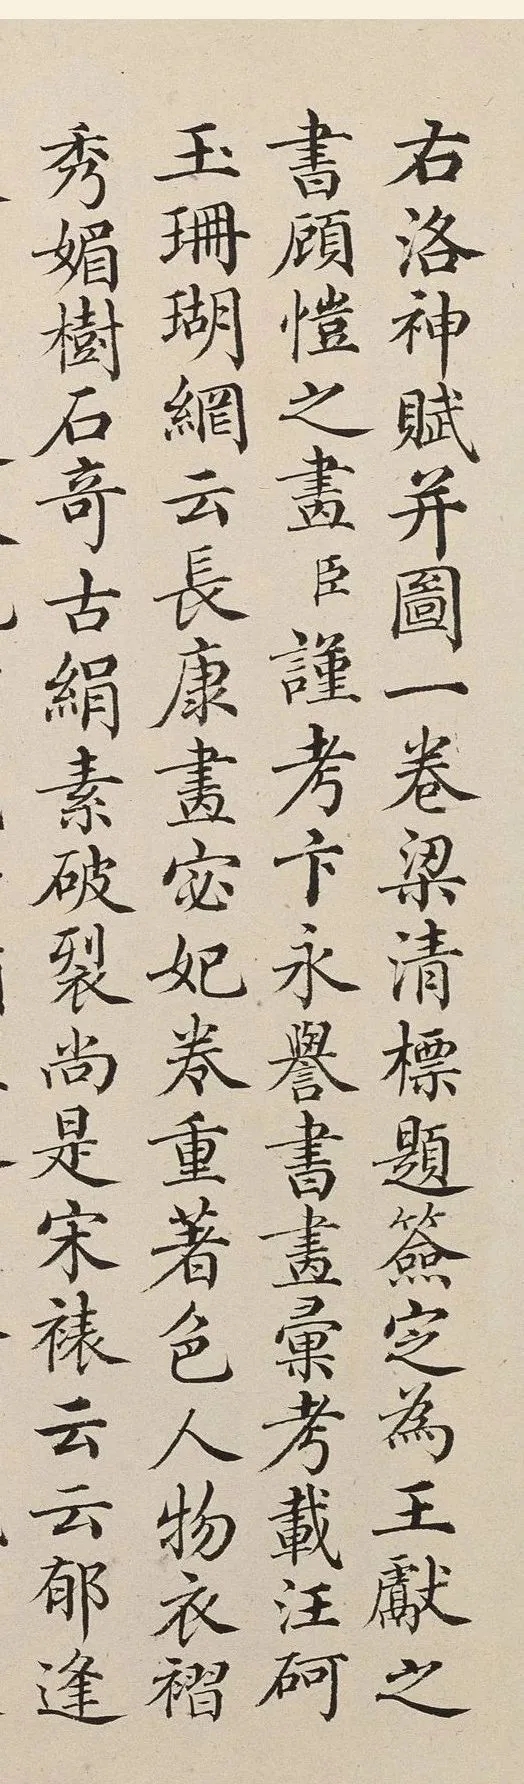 右洛神賦并圖一卷梁清標題簽定為王獻之
書顧愷之畫臣謹考卞永譽書畫彙考載汪砢
玉珊瑚網云長康畫宓妃卷重著色人物衣褶
秀媚樹石奇古絹素破裂尚是宋裱云云郁逢